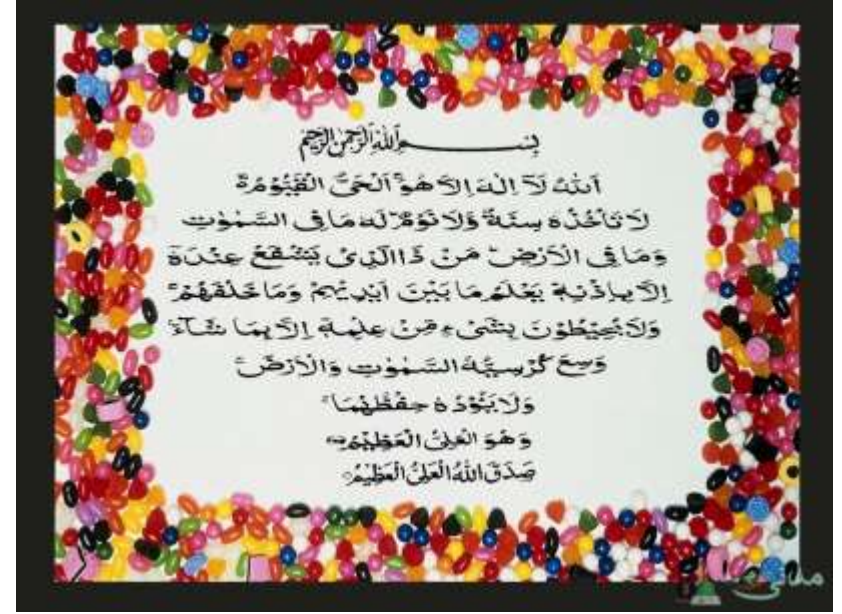 بِسْمِ اللّٰهِ الرَّحْمٰنِ الرَّحِيْمِ
اَللّٰهُ لَآ اِلٰهَ اِلَّا هُوَ ۚ اَلْحَىُّ الْقَيُّوْمُ ۚ
لَا تَاْخُذُهٗ سِنَةٌ وَّلَا نَوْمٌ ؕ لَهٗ مَا فِى السَّمٰوٰتِ
وَمَا فِى الْاَرْضِ ؕ مَنْ ذَا الَّذِىْ يَشْفَعُ عِنْدَهٗۤ
اِلَّا بِاِذْنِهٖ ؕ يَعْلَمُ مَا بَيْنَ اَيْدِيْهِمْ وَمَا خَلْفَهُمْ ۚ
وَلَا يُحِيْطُوْنَ بِشَىْءٍ مِّنْ عِلْمِهٖۤ اِلَّا بِمَا شَآءَ ۚ
وَسِعَ كُرْسِيُّهُ السَّمٰوٰتِ وَالْاَرْضَ ۚ
وَلَا يَئُوْدُهٗ حِفْظُهُمَا ۚ
وَهُوَ الْعَلِىُّ الْعَظِيْمُ
صَدَقَ اللّٰهُ الْعَلِىُّ الْعَظِيْمُ